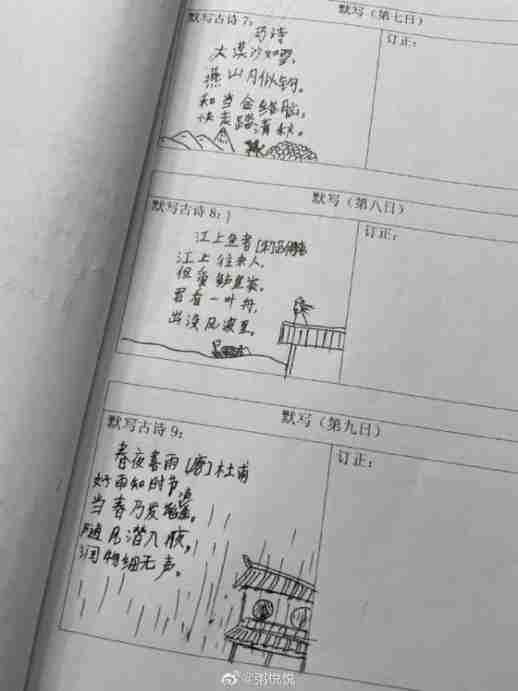 默写（第七日）
默写古诗7：
订正：
马诗
大漠沙如雪，
燕山月似钩。
和当金络脑，
快走踏清秋。
默写（第八日）
默写古诗8：
订正：
江上
者[宋]
江上往来人，
但爱鲈鱼美。
君看一叶舟，
出没风波里。
默写（第九日）
默写古诗9：
订正：
春夜喜雨[唐]杜甫
好雨知时节，
当春乃发
随风潜入夜，
润物细无声。
@粥悦悦